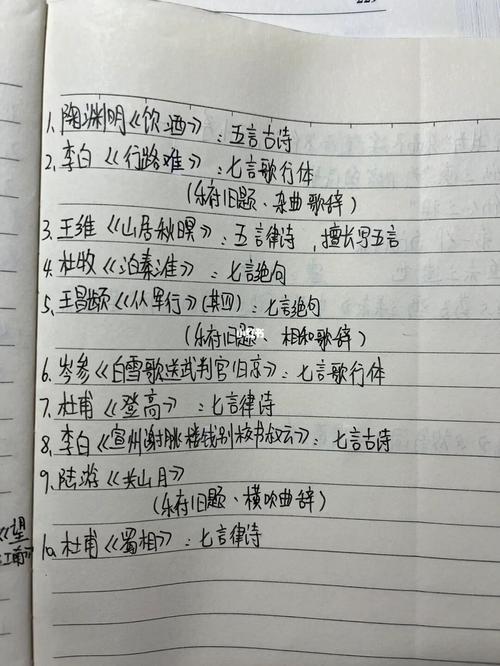 1.陶渊明《饮酒》：五言古诗
2.李白《行路难》：七言歌行体
(乐府旧题、杂曲歌辞)
3.王维《山居秋暝》：五言律诗，擅长写五言
4.杜牧《泊秦淮》：七言绝句
5.王昌龄《从军行》(其四)：七言绝句
(乐府旧题、相和歌辞)
6.岑参《白雪歌送武判官归京》：七言歌行体
7.杜甫《登高》：七言律诗
8.李白《宣州谢朓楼饯别校书叔云》：七言古诗
9.陆游《关山月》
(乐府旧题、横吹曲辞)
10.杜甫《蜀相》：七言律诗
《望
江南》
小红书